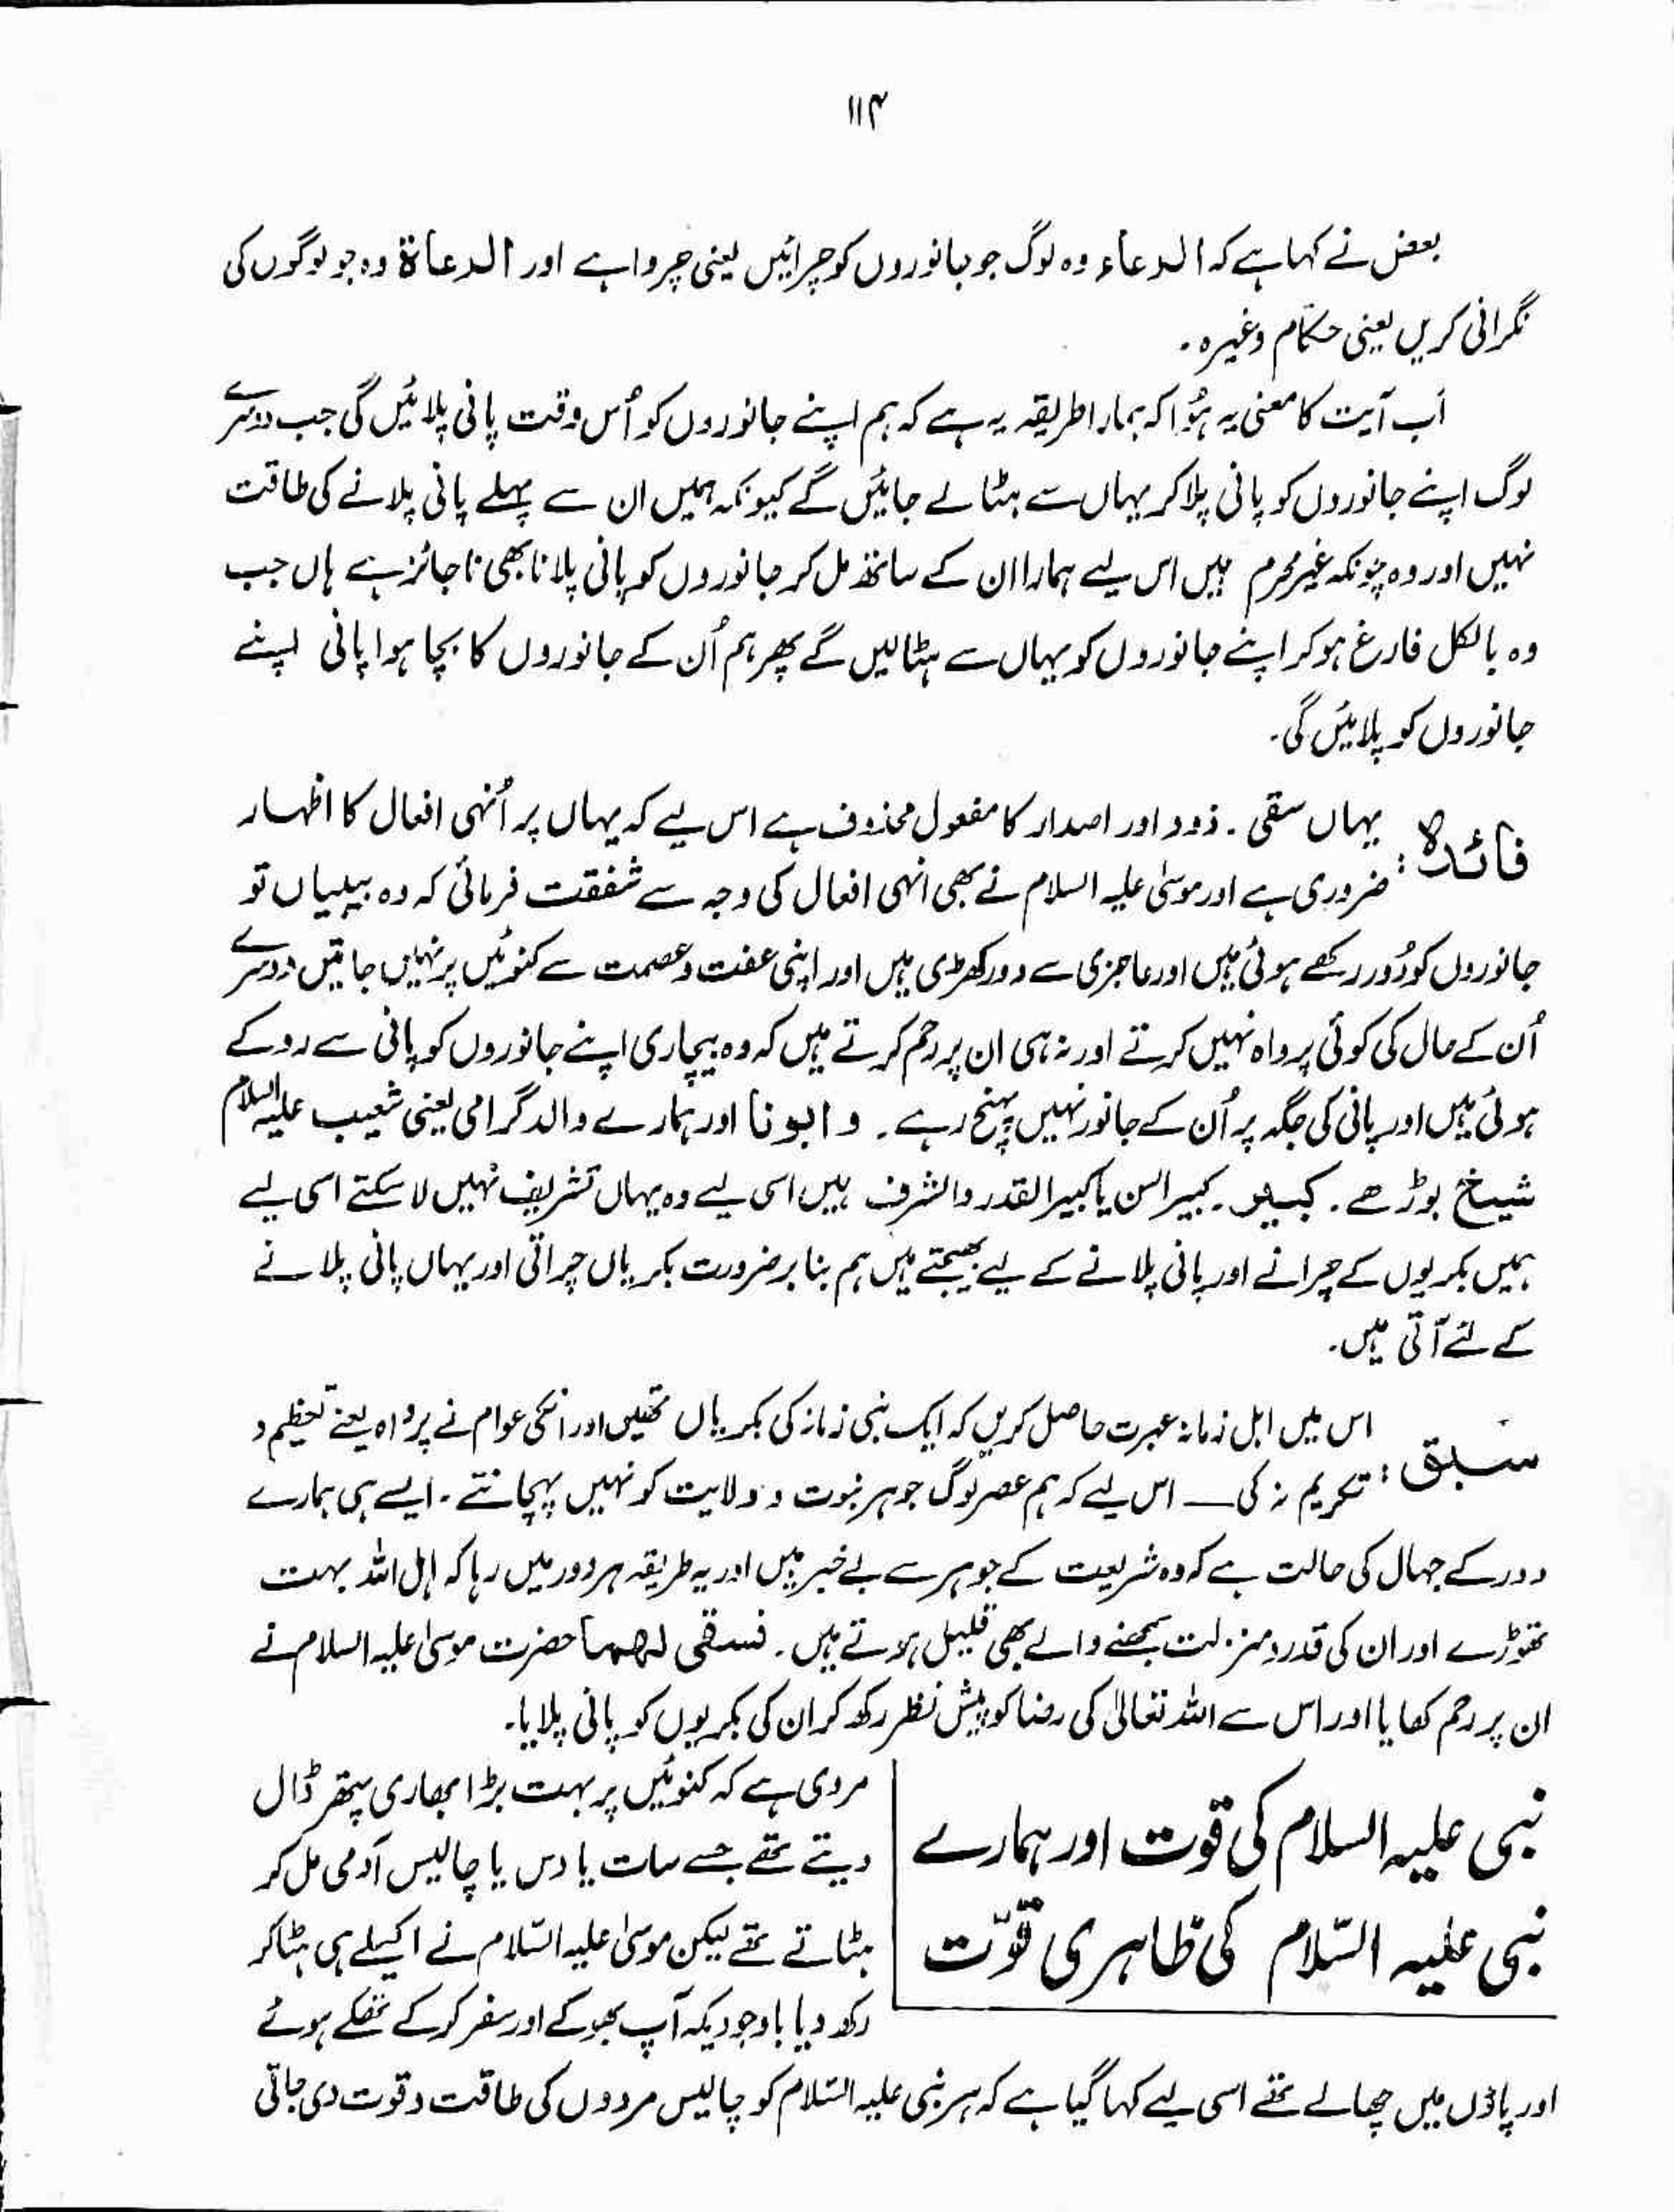 ۱۱۴
بعض نے کہا ہے کہ الدعاء وہ لوگ جو جانوروں کو چرائیں یعنی چرواہے اور الدعاۃ وہ جو لوگوں کی
نگرانی کریں یعنی حکّام وغیرہ ۔
اَب آیت کا معنی یہ ہُوا کہ ہمارا طریقہ یہ ہے کہ ہم اپنے جانوروں کو اُس وقت پانی پلائیں گی جب دوسرے
لوگ اپنے جانوروں کو پانی پلا کر یہاں سے ہٹا لے جائیں گے کیونکہ ہمیں ان سے پہلے پانی پلانے کی طاقت
نہیں اور وہ چونکہ غیر محرم ہیں اس لیے ہمارا ان کے ساتھ مل کر جانوروں کو پانی پلانا بھی ناجائز ہے ہاں جب
وہ بالکل فارغ ہو کر اپنے جانوروں کو یہاں سے ہٹا لیں گے پھر ہم اُن کے جانوروں کا بچا ہوا پانی اپنے
جانوروں کو پلائیں گی۔
فائدہ : یہاں سقی ۔ ذود اور اصدار کا مفعول محذوف ہے اس لیے کہ یہاں پر اُنہی افعال کا اظہار
ضروری ہے اور موسٰی علیہ السلام نے بھی انہی افعال کی وجہ سے شفقت فرمائی کہ وہ بیبیاں تو
جانوروں کو دُور رکھے ہوئی ہیں اور عاجزی سے دور کھڑی ہیں اور اپنی عفت و عصمت سے کنوئیں پر نہیں جاتیں دوسرے
اُن کے حال کی کوئی پرواہ نہیں کرتے اور نہ ہی ان پر رحم کرتے ہیں کہ وہ بیچاری اپنے جانوروں کو پانی سے روکے
ہوئی ہیں اور پانی کی جگہ پر اُن کے جانور نہیں پہنچ رہے ۔ و ابونا اور ہمارے والد گرامی یعنی شعیب علیہ السلام
شیخ بوڑھے ۔ کبیر ۔ کبیر السن یا کبیر القدر والشرف ہیں اسی لیے وہ یہاں تشریف نہیں لا سکتے اسی لیے
ہمیں بکریوں کے چرانے اور پانی پلانے کے لیے بھیجتے ہیں ہم بنا بر ضرورت بکریاں چراتی اور یہاں پانی پلانے
کے لئے آتی ہیں۔
سبق : اس میں اہل زمانہ عبرت حاصل کریں کہ ایک نبی زمانہ کی بکریاں تھیں اور انکی عوام نے پرواہ یعنے تعظیم و
تکریم نہ کی ـــ اس لیے کہ ہم عصر لوگ جوہر نبوت و ولایت کو نہیں پہچانتے ۔ ایسے ہی ہمارے
دور کے جہال کی حالت ہے کہ وہ شریعت کے جوہر سے بے خبر ہیں اور یہ طریقہ ہر دور میں رہا کہ اہل اللہ بہت
تھوڑے اور ان کی قدر و منزلت سمجھنے والے بھی قلیل ہوتے ہیں ۔ فسقی لھما حضرت موسٰی علیہ السلام نے
ان پر رحم کھایا اور اس سے اللہ تعالیٰ کی رضا کو پیش نظر رکھ کر ان کی بکریوں کو پانی پلایا۔
نبی علیہ السلام کی قوت اور ہمارے
نبی علیہ السّلام کی ظاہری قوّت
مروی ہے کہ کنوئیں پر بہت بڑا بھاری پتھر ڈال
دیتے تھے جسے سات یا دس یا چالیس آدمی مل کر
ہٹاتے تھے لیکن موسیٰ علیہ السّلام نے اکیلے ہی ہٹا کر
رکھ دیا باوجودیکہ آپ بھوکے اور سفر کر کے تھکے ہوئے
اور پاؤں میں چھالے تھے اسی لیے کہا گیا ہے کہ ہر نبی علیہ السّلام کو چالیس مردوں کی طاقت و قوت دی جاتی